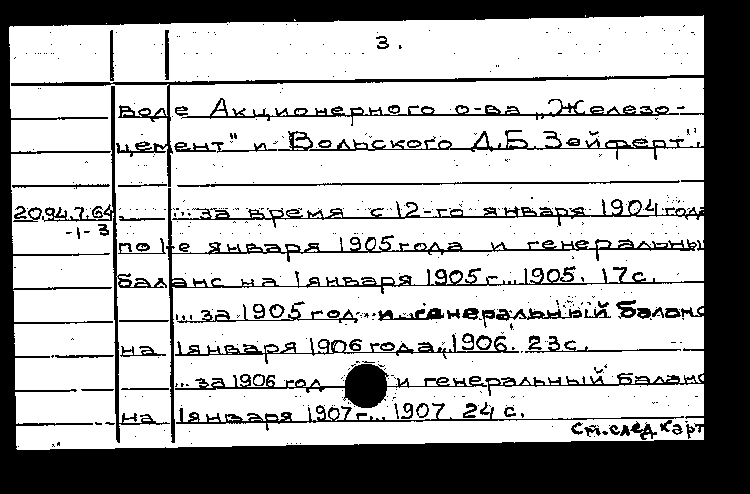 3.
воде Акционерного о-ва „Железо-
цемент" и Вольского Д.Б. Зейферт".
20.94.7.64 ...за время с 12-го января 1904 года
-1-3
по 1-е января 1905 года и генеральны
баланс на 1 января 1905 г... 1905. 17 с.
...за 1905 год и генеральный баланс
на 1 января 1906 года. 1906. 23 с.
...за 1906 год и генеральный баланс
на 1 января 1907 г... 1907. 24 с.
См. след. карт